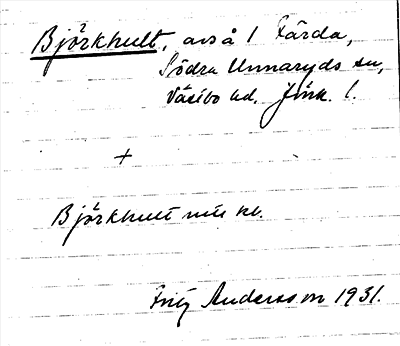 Björkhult, avs å 1 Färda,
Södra Unnaryds sn,
Västbo hd. Jönk. l.
+
Björkhult
Andersson 1931.